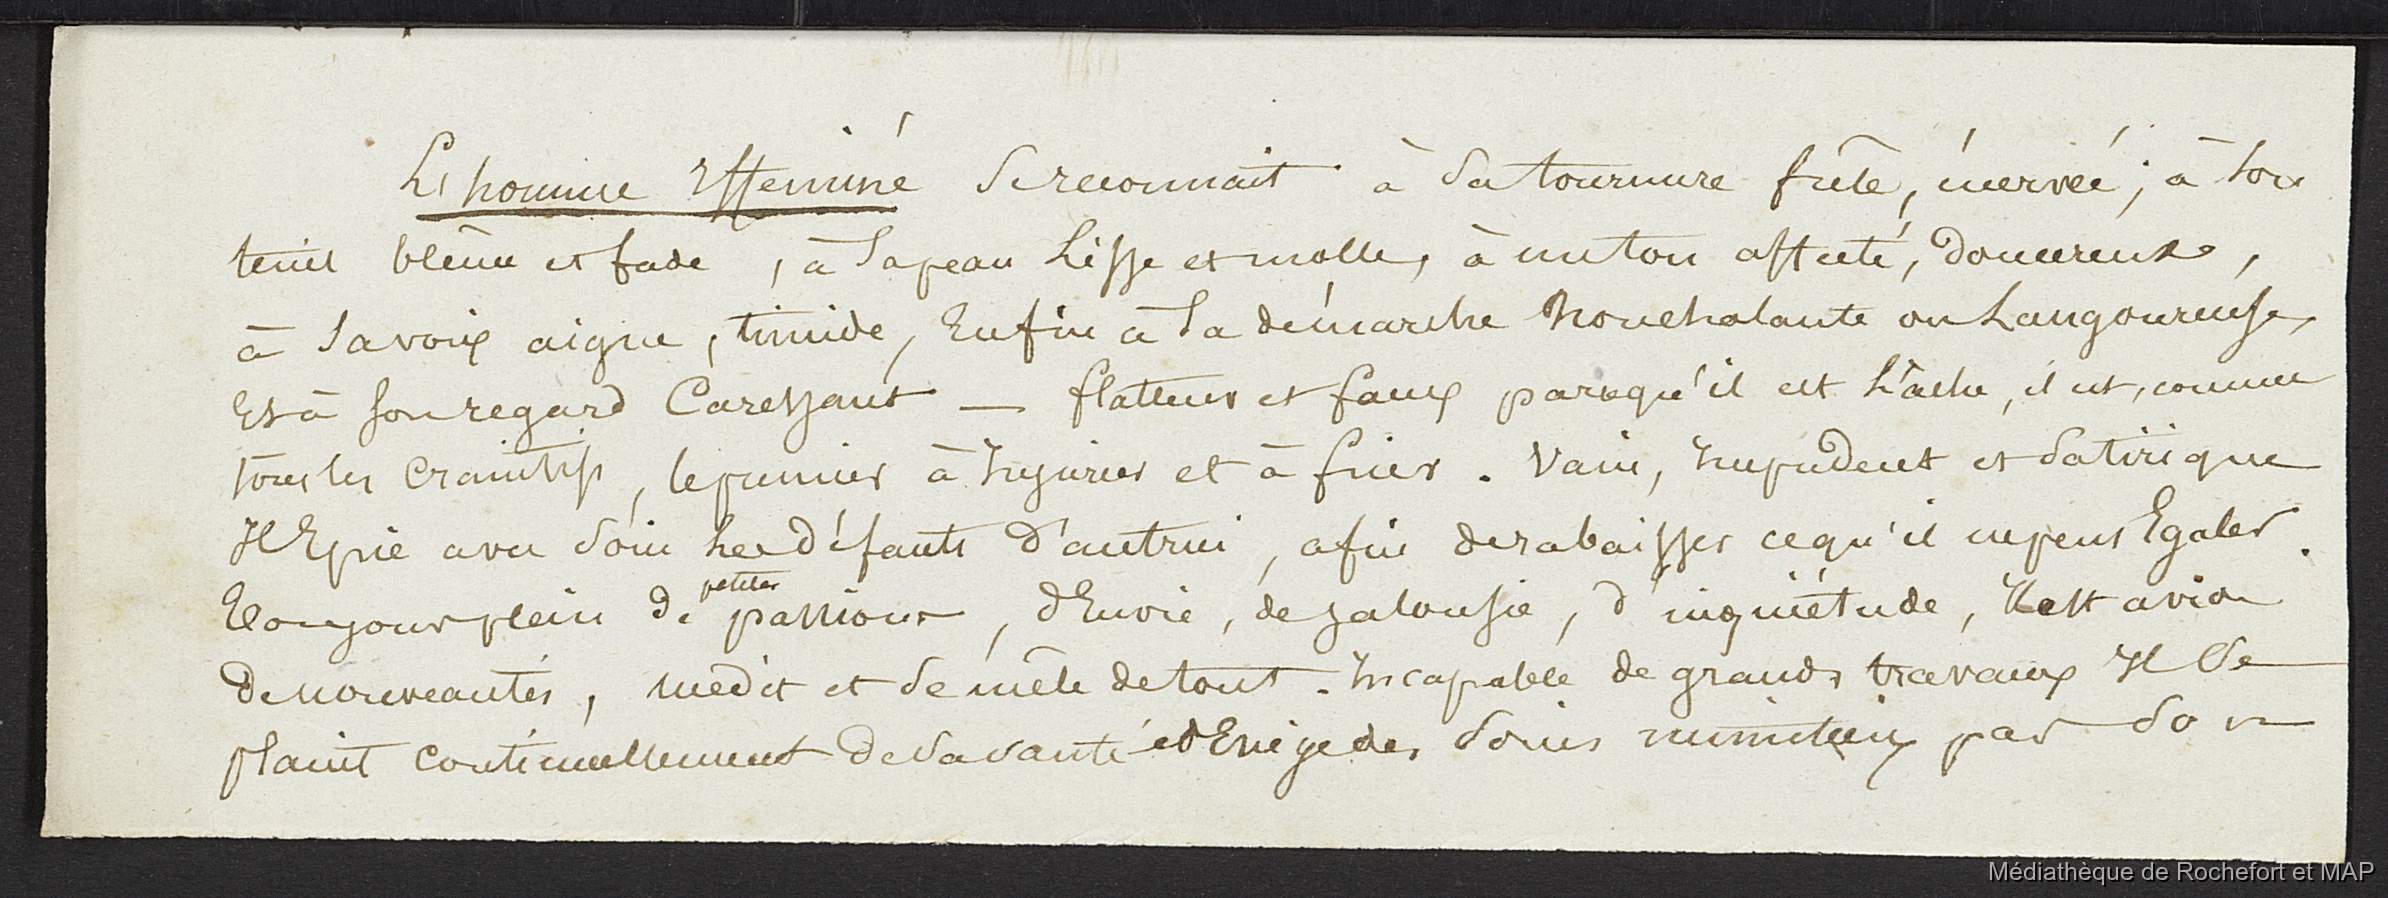 L'homme Efféminé se reconnait à sa tournure frêle, énervée ; à son
teint blême et fade, à sa peau lisse et molle, à un ton affecté, doucereux,
à sa voix aigue, timide, Enfin à sa démarche nonchalante ou Langoureuse,
Et à son regard Caressant — flatteur et faux parcequ'il est Lâche, il est, comme
tous les craintifs, le premier à Injurier et à fuir. Vain, Impudent et satirique
Il Epie avec soin les défauts d'autrui, afin de rabaisser ce qu'il ne peut Egaler.
Toujours plein de petites passions, d'Envie, de jalousie, d'inquiétude, Il est avide
de nouveautés, médit et se mêle de tout. Incapable de grands travaux Il se
plaint continuellement de sa santé et Exige des soins minutieux par son
Médiathèque de Rochefort et MAP